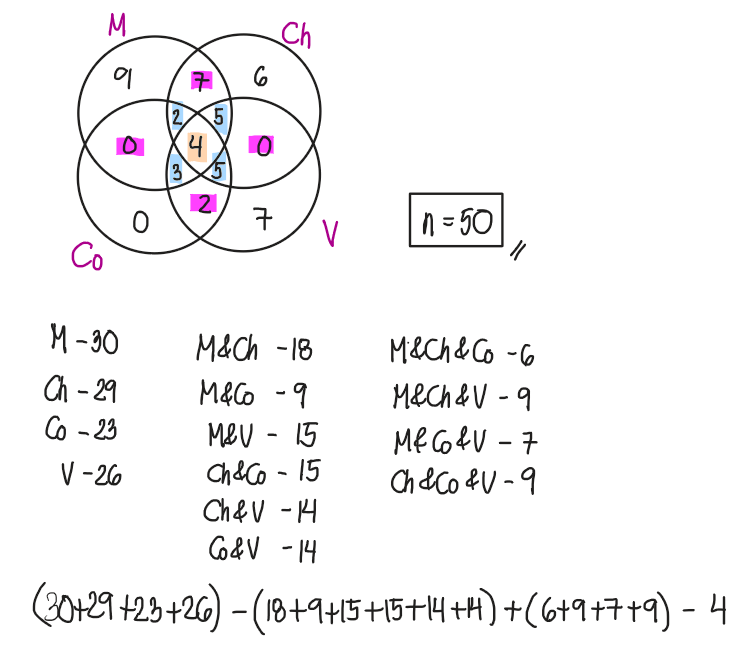 M Ch
9 7 6
2 5
0 4 0
3 5
2
0 7
Co V
n = 50
M - 30
Ch - 29
Co - 23
V - 26
M&Ch - 18
M&Co - 9
M&V - 15
Ch&Co - 15
Ch&V - 14
Co&V - 14
M&Ch&Co - 6
M&Ch&V - 9
M&Co&V - 7
Ch&Co&V - 9
(30+29+23+26) - (18+9+15+15+14+14) + (6+9+7+9) - 4